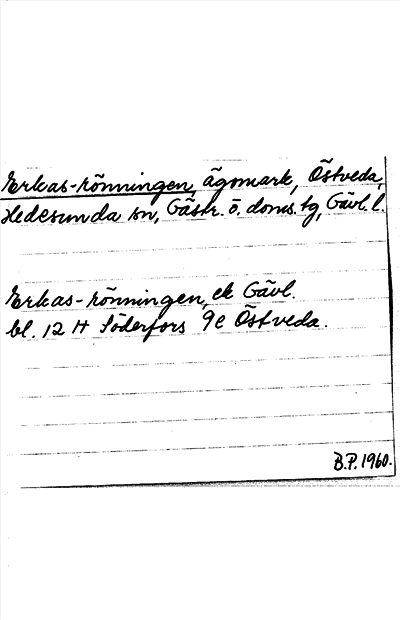 Erkas-rönningen, ägomark, Östveda,
Hedesunda sn, Gästr. ö. doms. tg, Gävl. l.
Erkas-rönningen, ek Gävl.
bl. 12 H Söderfors 9e Östveda.
B.P. 1960.